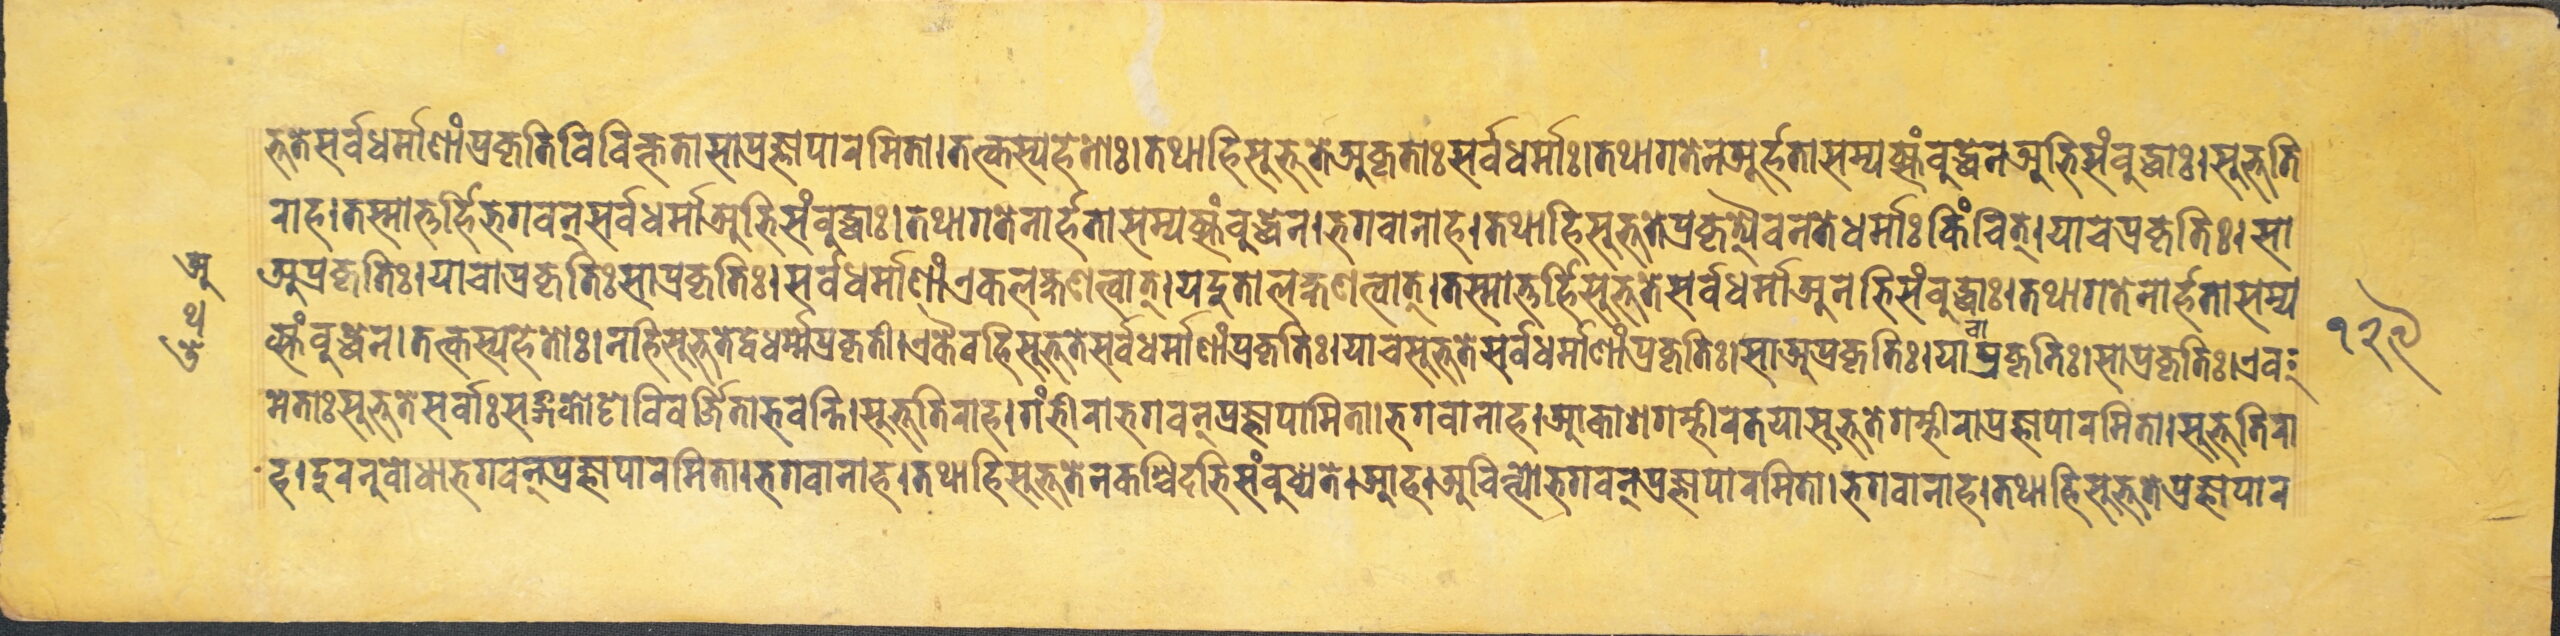 भूतेसर्वधर्माणांप्रकृतिविविक्तातासाप्रज्ञापारमिता।तत्कस्यहेतोः।तथाहिसुभूतेअकृताःसर्वधर्माः।तथागतेनअर्हतासम्यक्संबुद्धेनअभिसंबुद्धाः।सुभूति
राह।तस्मात्तर्हिभगवन्सर्वधर्माअभिसंबुद्धाः।तथागतेनार्हतासम्यक्संबुद्धेन।भगवानाह।तथाहिसुभूतेप्रकृत्यैवनतेधर्माःकिंचित्।याचप्रकृतिः।सा
अप्रकृतिः।याचाप्रकृतिःसाप्रकृतिः।सर्वधर्माणांएकलक्षणत्वात्।यदुतालक्षणत्वात्।तस्मात्तर्हिसुभूतेसर्वधर्माअनभिसंबुद्धाः।तथागतेनार्हतासम्य
क्संबुद्धेन।तत्कस्यहेतोः।नहिसुभूतेद्वेधर्म्मप्रकृती।एकैवहिसुभूतेसर्वधर्माणांप्रकृतिः।याचसुभूतेसर्वधर्माणांप्रकृतिः।साअप्रकृतिः।याचाप्रकृतिः।साप्रकृतिः।एव
मेताःसुभूतेसर्वाःसङ्गकोट्योविवर्जिताभवन्ति।सुभूतिराह।गंभीराभगवन्प्रज्ञापामिता।भगवानाह।आकाशगम्भीरतयासुभूतेगम्भीराप्रज्ञापारमिता।सुभूतिरा
ह।दुरनुबोधाभगवन्प्रज्ञापारमिता।भगवानाह।तथाहिसुभूतेनकश्चिदभिसंबुध्यते।आह।अचिन्त्याभगवन्प्रज्ञापारमिता।भगवानाह।तथाहिसुभूतेप्रज्ञापार
१२९